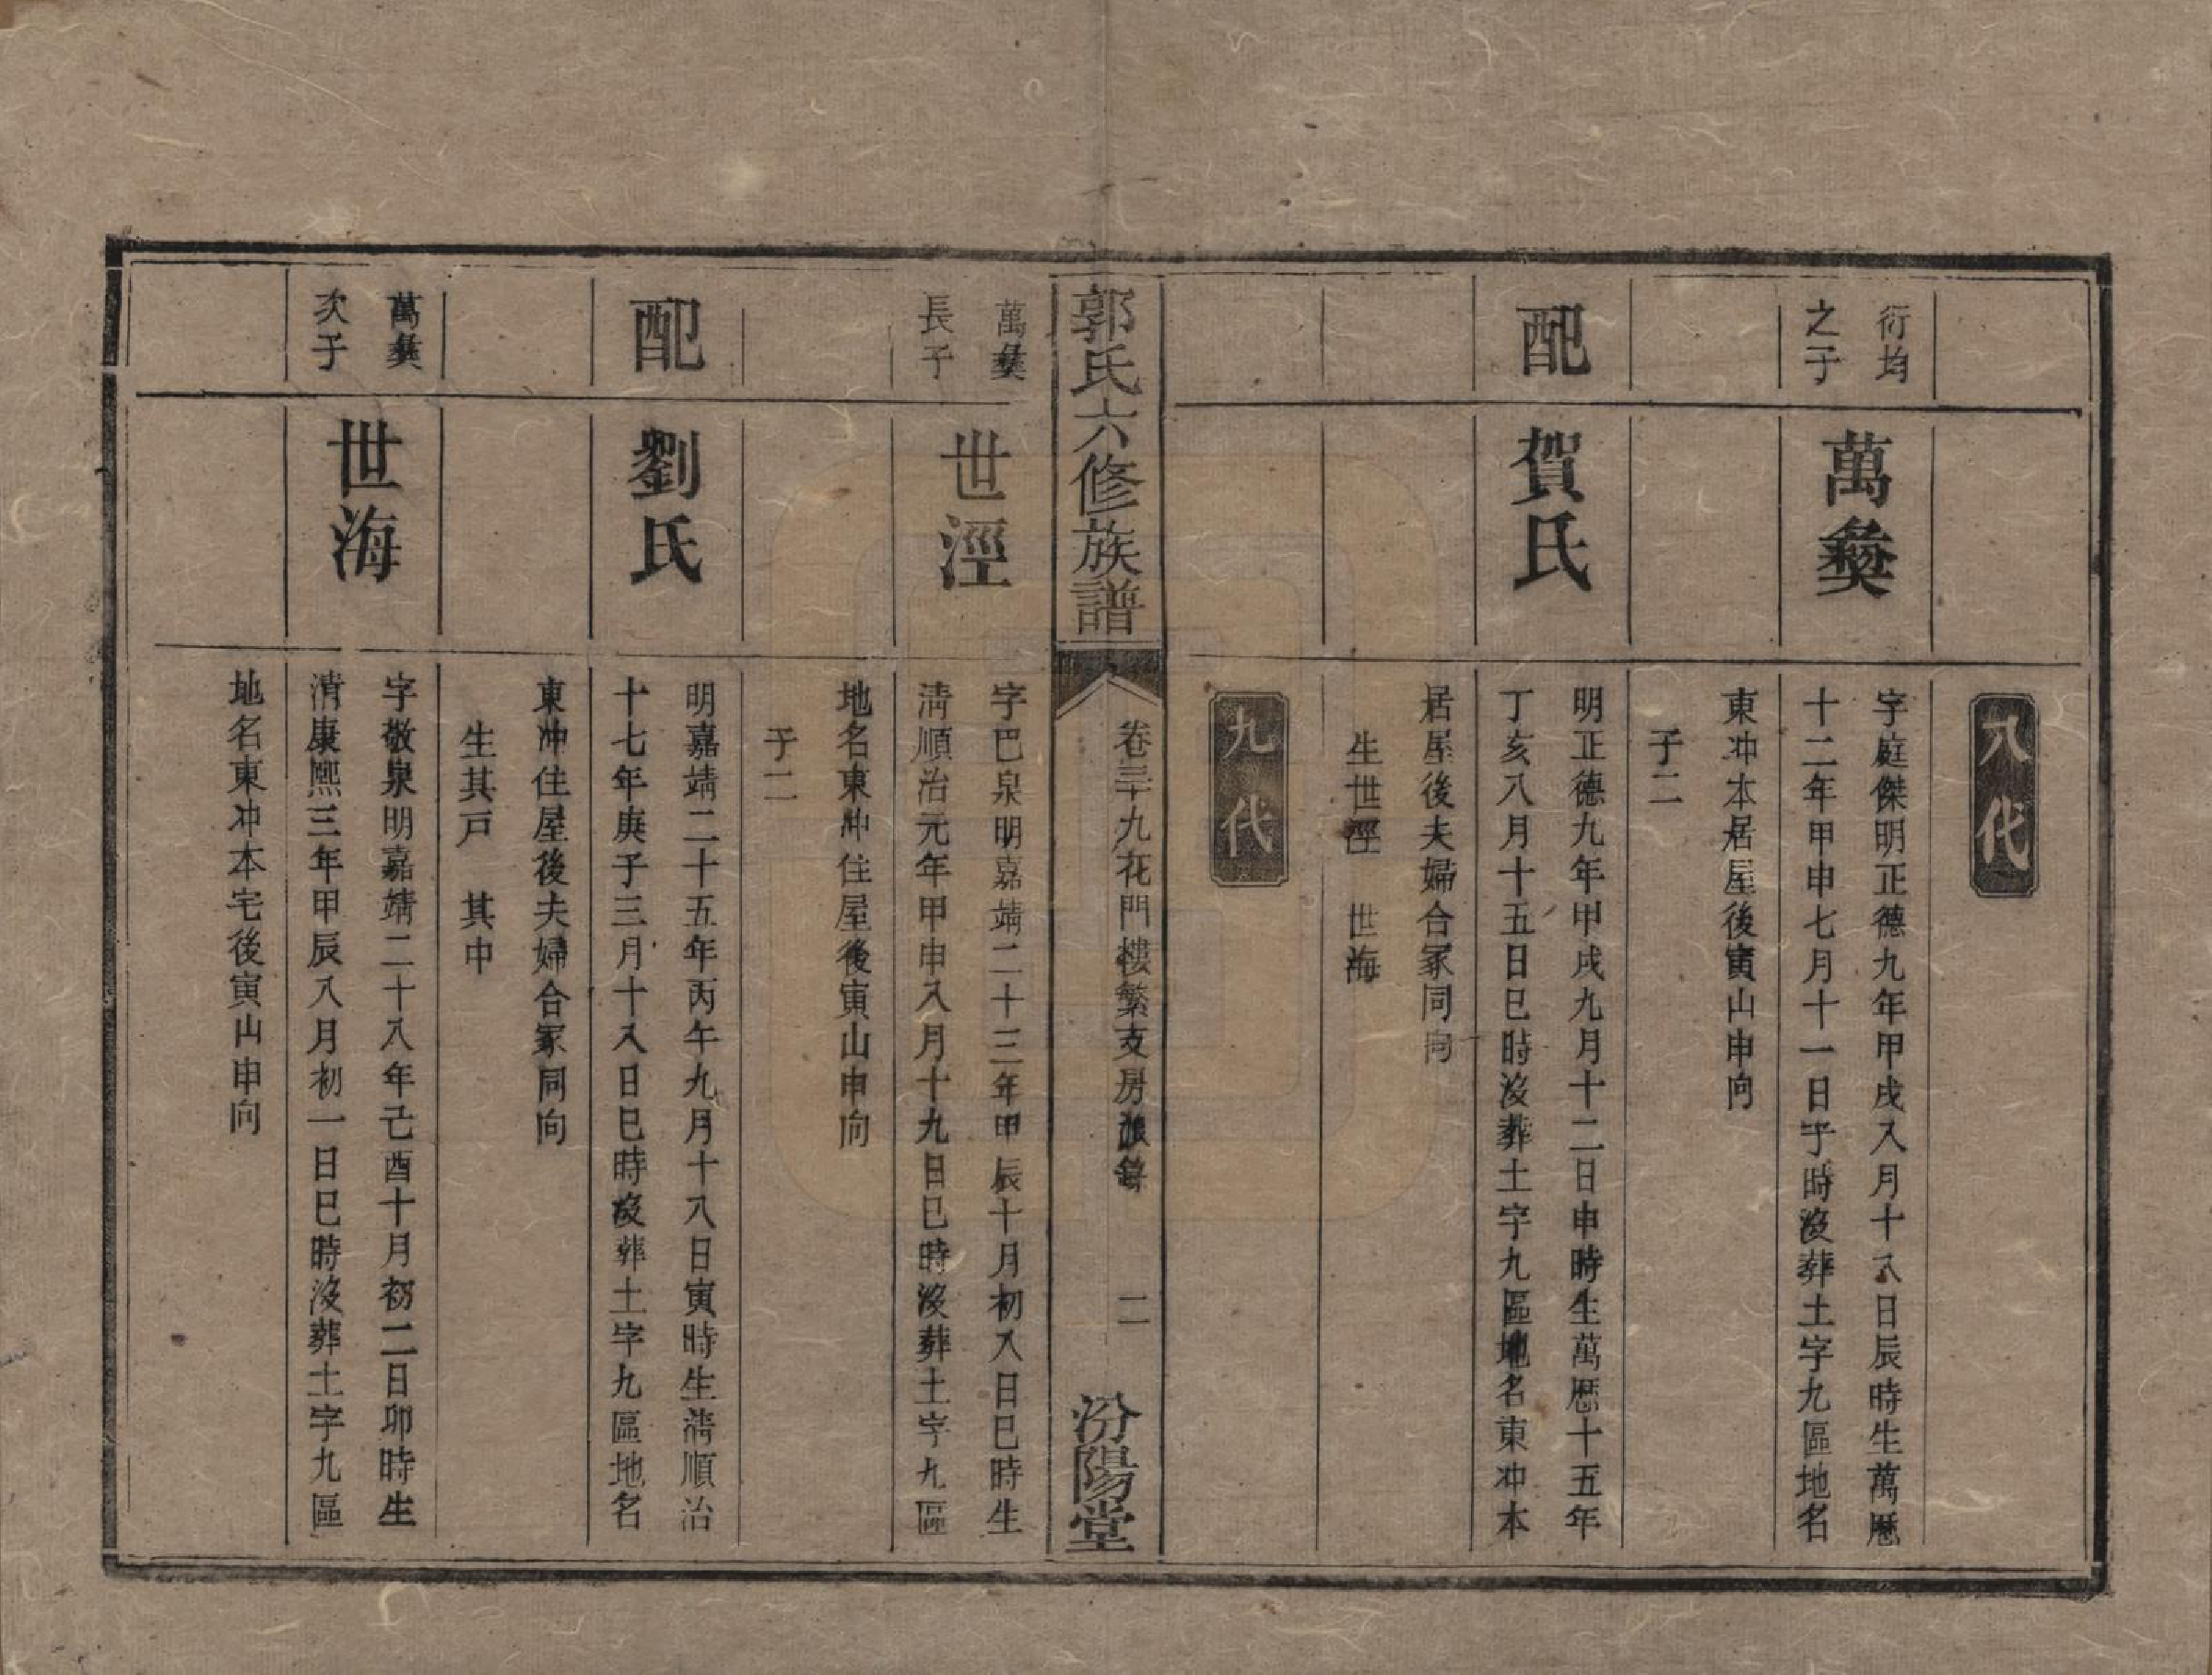 八代
衍均
之子
萬彝
字庭傑明正德九年甲戌八月十八日辰時生萬曆
十二年甲申七月十一日子時沒葬土字九區地名
東冲本居屋後寅山申向
子二
配
賀氏
明正德九年甲戌九月十二日申時生萬曆十五年
丁亥八月十五日巳時沒葬土字九區地名東冲本
居屋後夫婦合冢同向
生世涇 世海
九代
郭氏六修族譜
卷三十九花門樓繁支房派錄 二
汾陽堂
萬彝
長子
世涇
字巴泉明嘉靖二十三年甲辰十月初八日巳時生
清順治元年甲申八月十九日巳時沒葬土字九區
地名東冲住屋後寅山申向
子二
配
劉氏
明嘉靖二十五年丙午九月十八日寅時生清順治
十七年庚子三月十八日巳時沒葬土字九區地名
東冲住屋後夫婦合冢同向
生其戸 其中
萬彝
次子
世海
字敬泉明嘉靖二十八年己酉十月初二日卯時生
清康熙三年甲辰八月初一日巳時沒葬土字九區
地名東冲本宅後寅山申向